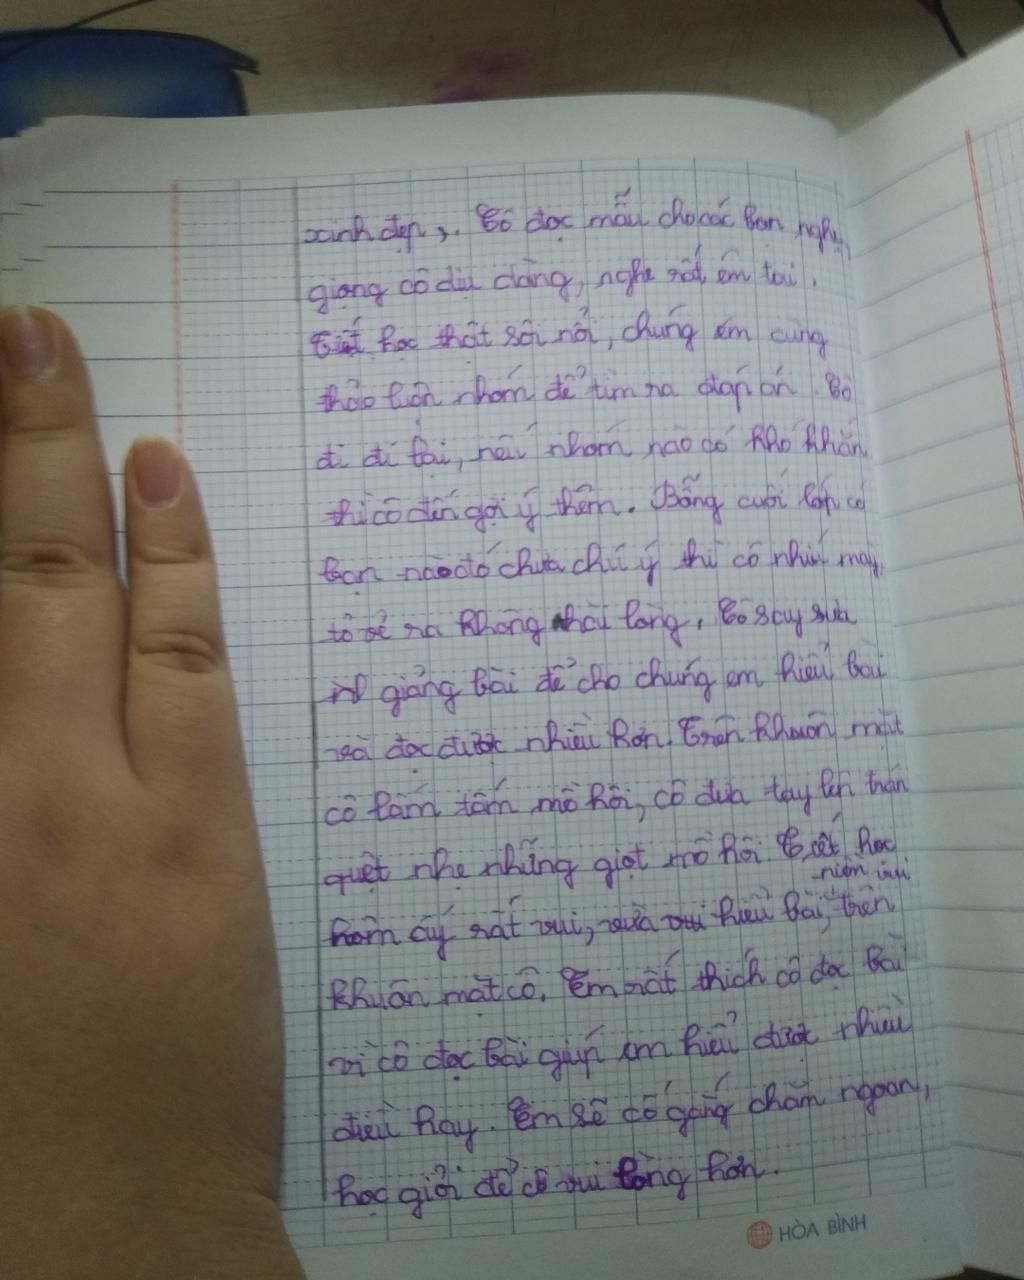 xinh đẹp,. Cô đọc mẫu cho các bạn nghe,
giọng cô dịu dàng, nghe rất êm tai.
Tiết học thật sôi nổi, chúng em cùng
thảo luận nhóm để tìm ra đáp án. Cô
đi đi lại, nếu nhóm nào có khó khăn
thì cô đến gợi ý thêm. Bỗng cuối lớp có
bạn nào đó chưa chú ý thì cô nhíu mày,
tỏ vẻ ra không hài lòng. Cô say sưa
giảng bài để cho chúng em hiểu bài
và đọc được nhiều hơn. Trên khuôn mặt
cô lấm tấm mồ hôi, cô đưa tay lên trán
quệt nhẹ những giọt mồ hôi. Tiết học
niềm vui
hôm ấy rất vui, vừa vui hiểu bài, trên
khuôn mặt cô. Em rất thích cô đọc bài
vì cô đọc bài giúp em hiểu được nhiều
điều hay. Em sẽ cố gắng chăm ngoan,
học giỏi để cô vui lòng hơn.
HÒA BÌNH